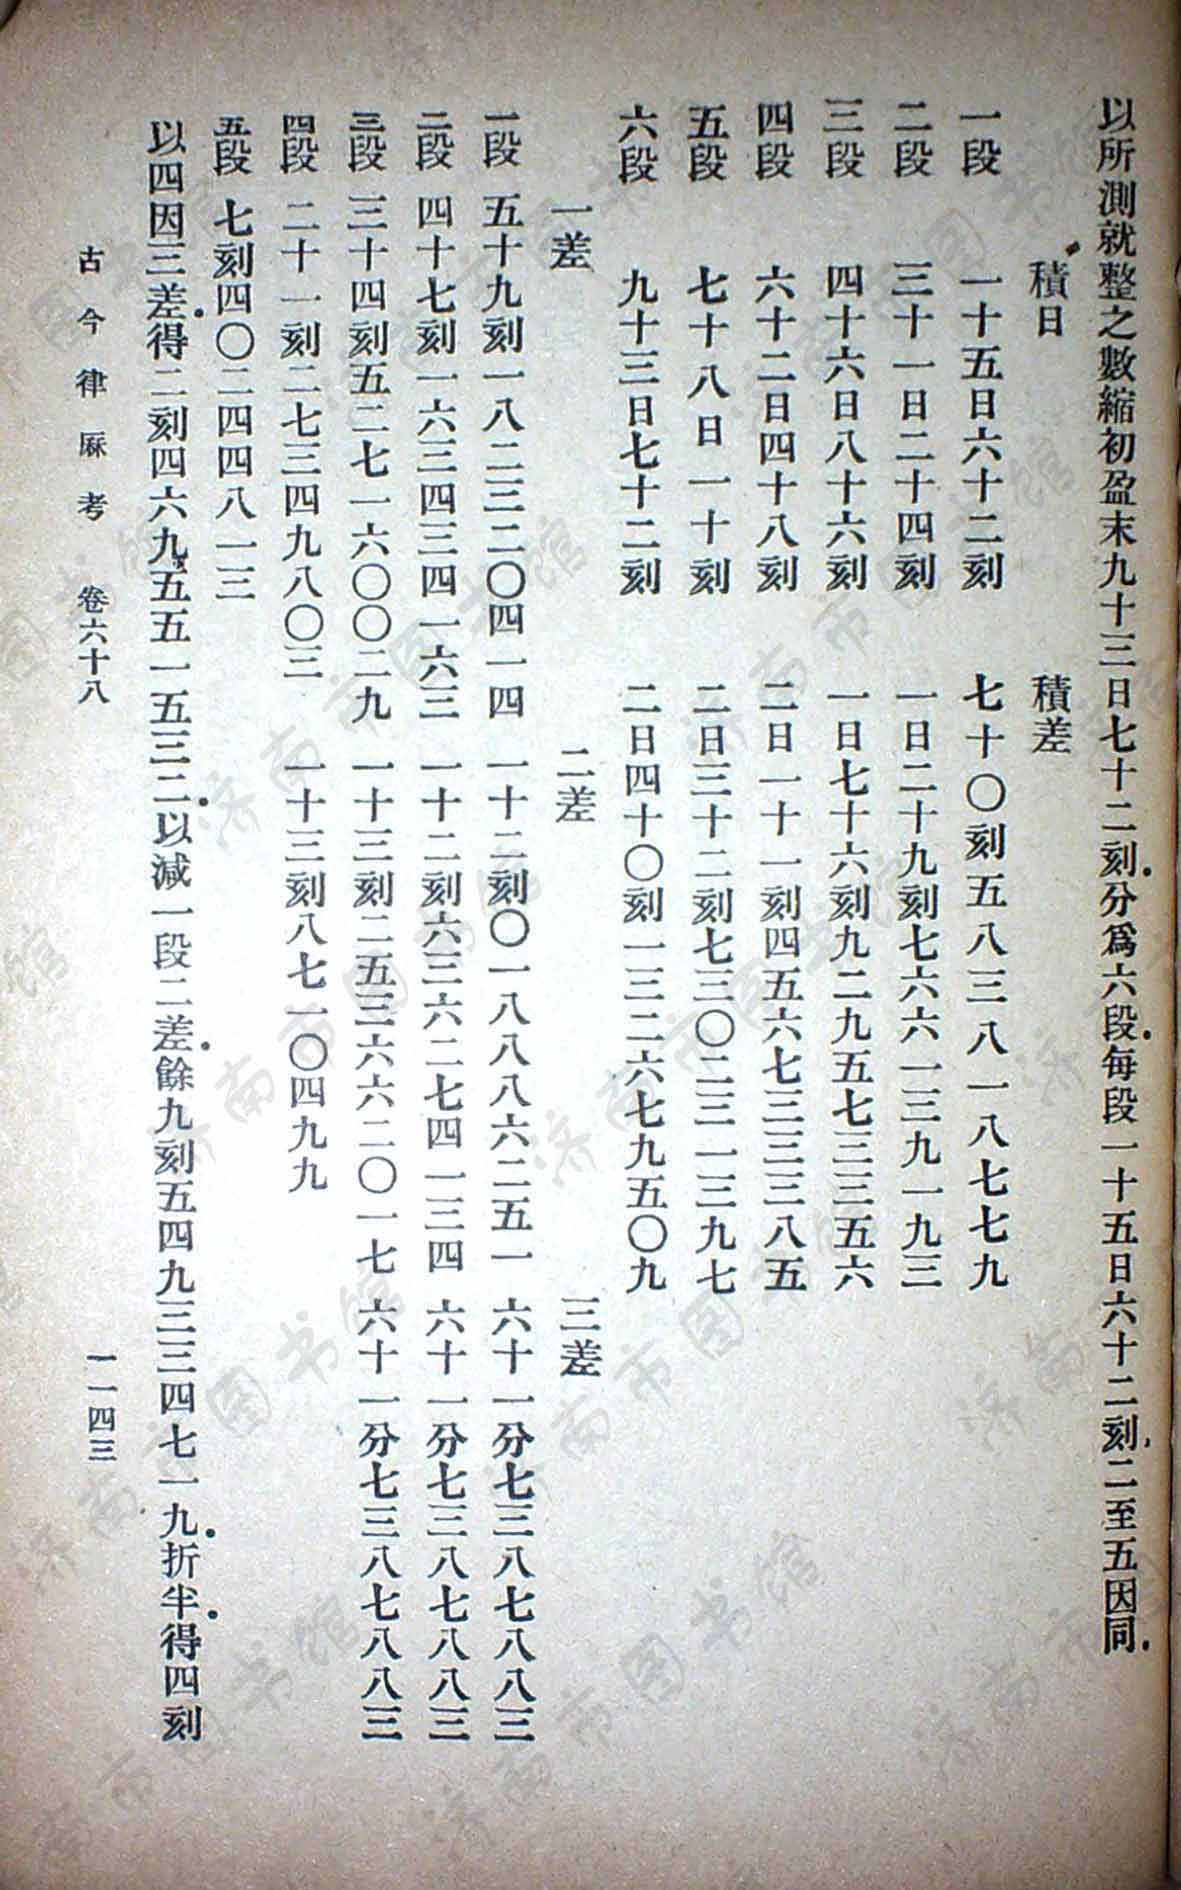 以所測就整之數縮初盈末九十三日七十二刻.分爲六段.每段一十五日六十二刻.二至五因同.
積日　積差
一段　一十五日六十二刻　七十〇刻五八三八一八七七九
二段　三十一日二十四刻　一日二十九刻七六六一三九一九三
三段　四十六日八十六刻　一日七十六刻九二九五七三三五六
四段　六十二日四十八刻　二日一十一刻四五六七三三三八五
五段　七十八日一十刻　二日三十二刻七三〇二三一三九七
六段　九十三日七十二刻　二日四十〇刻一三二六七九五〇九
一差　二差　三差
一段　五十九刻一八二三二〇四一四　一十二刻〇一八八八六二五一　六十一分七三八七八八三
二段　四十七刻一六三四三四一六三　一十二刻六三六二七四一三四　六十一分七三八七八八三
三段　三十四刻五二七一六〇〇二九　一十三刻二五三六六二〇一七　六十一分七三八七八八三
四段　二十一刻二七三四九八〇三　一十三刻八七一〇四九九
五段　七刻四〇二四四八一三
以四因三差.得二刻四六九五五一五三二.以減一段二差.餘九刻五四九三三四七一九.折半.得四刻
古今律厤考　卷六十八　一一四三
济南市图书馆